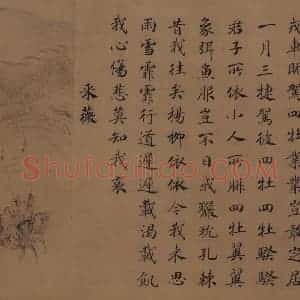 戎車既駕四牡業業豈敢定居
一月三捷駕彼四牡四牡騤騤
君子所依小人所腓四牡翼翼
象弭魚服豈不日戒玁狁孔棘
昔我往矣楊柳依依今我來思
雨雪霏霏行道遲遲載渴載飢
我心傷悲莫知我哀
采薇